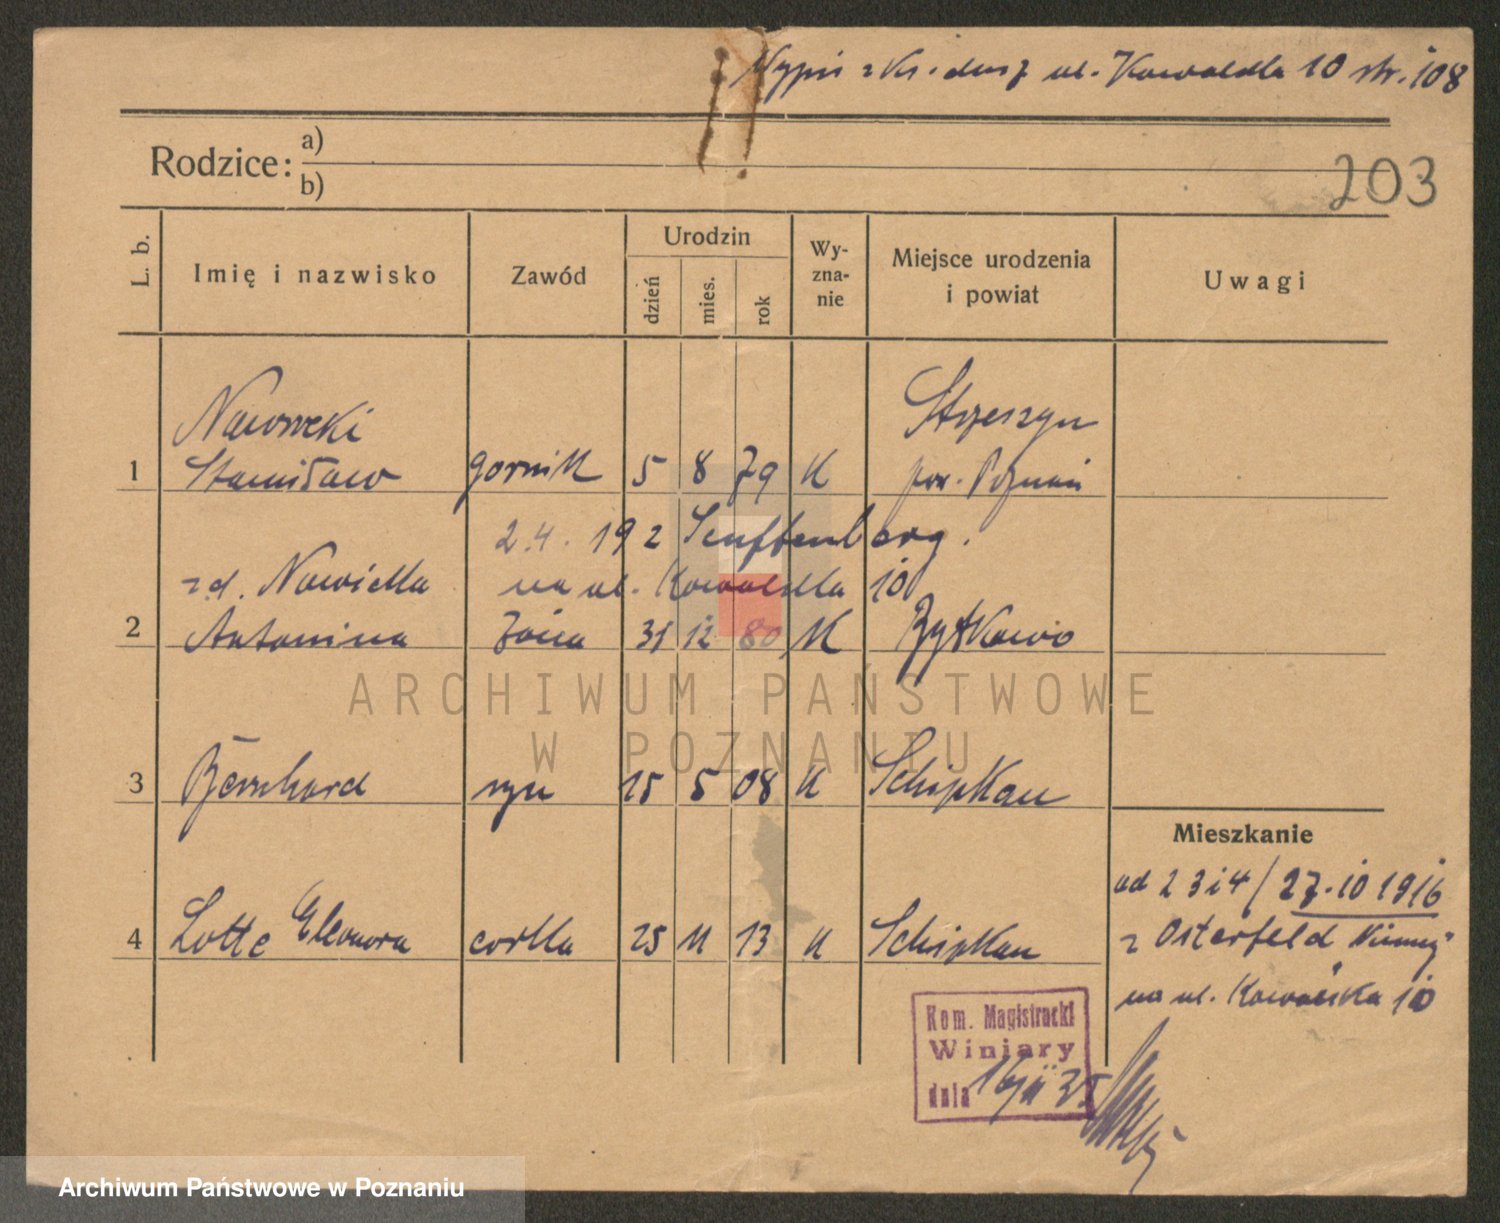 Wypis z Ks. ul. Kowalska 10 str. 108
Rodzice:
a)
b)
203
L. b.
Imię i nazwisko
Zawód
Urodzin
dzień
mies.
rok
Wy-
zna-
nie
Miejsce urodzenia
i powiat
Uwagi
Nawrocki Strzeszyn
1 Stanisław gornik 5 8 79 K pow. Poznań
2.4. 192 Senftenberg.
zd. na ul. Kowalska 10
2 Antonina żona 31 12 80 K Żytkowo
3 Bernhard syn 15 5 08 K Schipkau
Mieszkanie
od 2 3 i 4 / 27.10 1916
4 Lotte Eleonora corka 25 11 13 K Schipkau
z Osterfeld
na ul. Kowalska 10
Kom. Magistracki
Winiary
dnia 16/II 35
ARCHIWUM PAŃSTWOWE
W POZNANIU
Archiwum Państwowe w Poznaniu